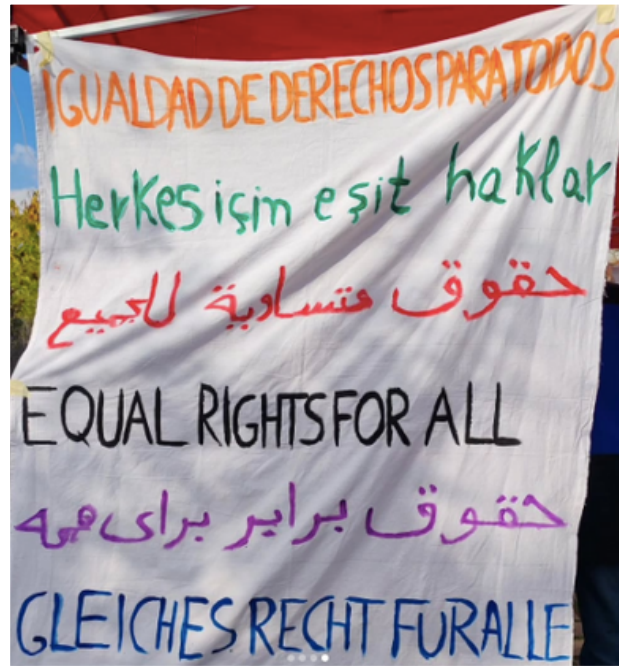 IGUALDAD DE DERECHOS PARA TODOS
Herkes için eşit haklar
حقوق متساوية للجميع
EQUAL RIGHTS FOR ALL
حقوق برابر برای همه
GLEICHES RECHT FUR ALLE